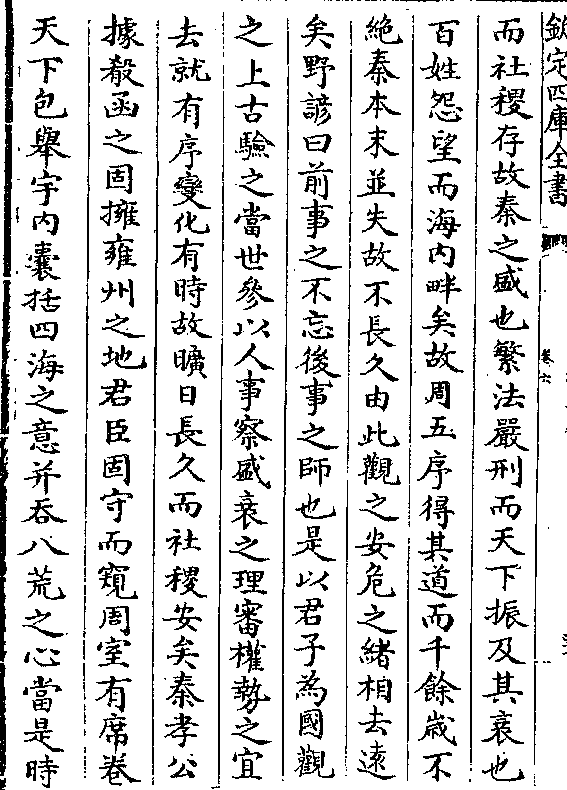 欽定四庫全書
卷六
而社稷存故秦之盛也繁法嚴刑而天下振及其衰也
百姓怨望而海内畔矣故周五序得其道而千餘歲不
絶秦本末並失故不長久由此觀之安危之緒相去遠
矣野諺曰前事之不忘後事之師也是以君子為國觀
之上古驗之當世參以人事察盛衰之理審權勢之宜
去就有序變化有時故曠日長久而社稷安矣秦孝公
據殽函之固擁雍州之地君臣固守而窺周室有席巻
天下包舉宇内囊括四海之意并吞八荒之心當是時